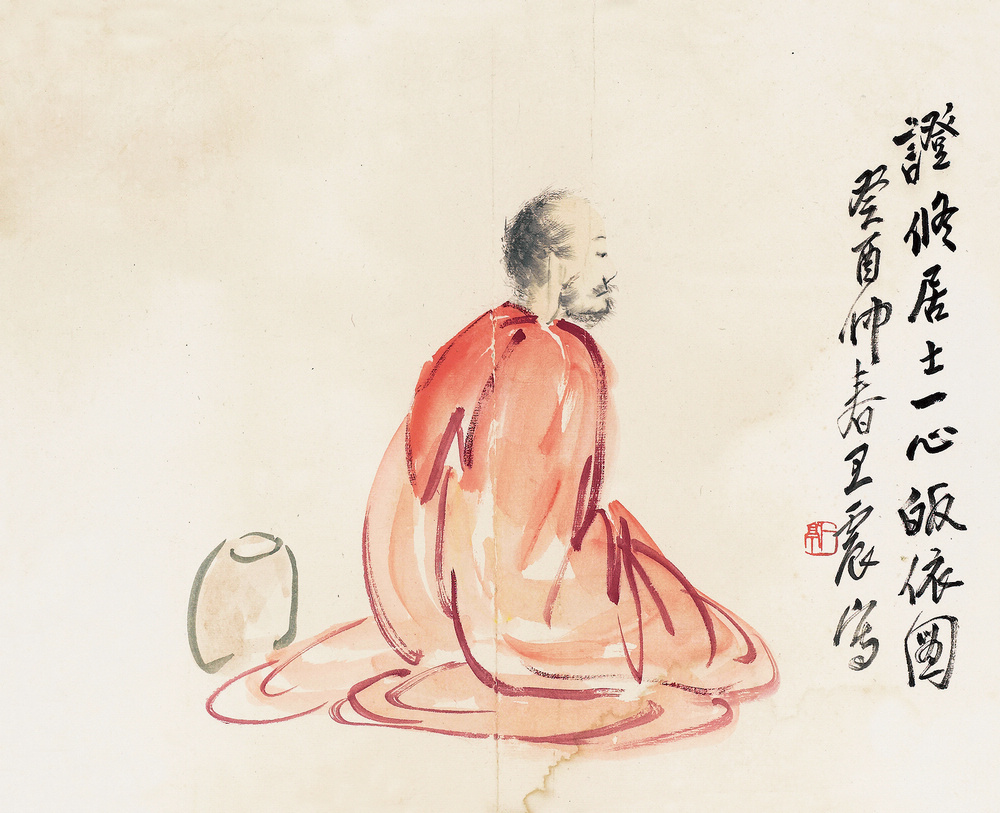 證脩居士一心皈依圖
癸酉仲春王震寫